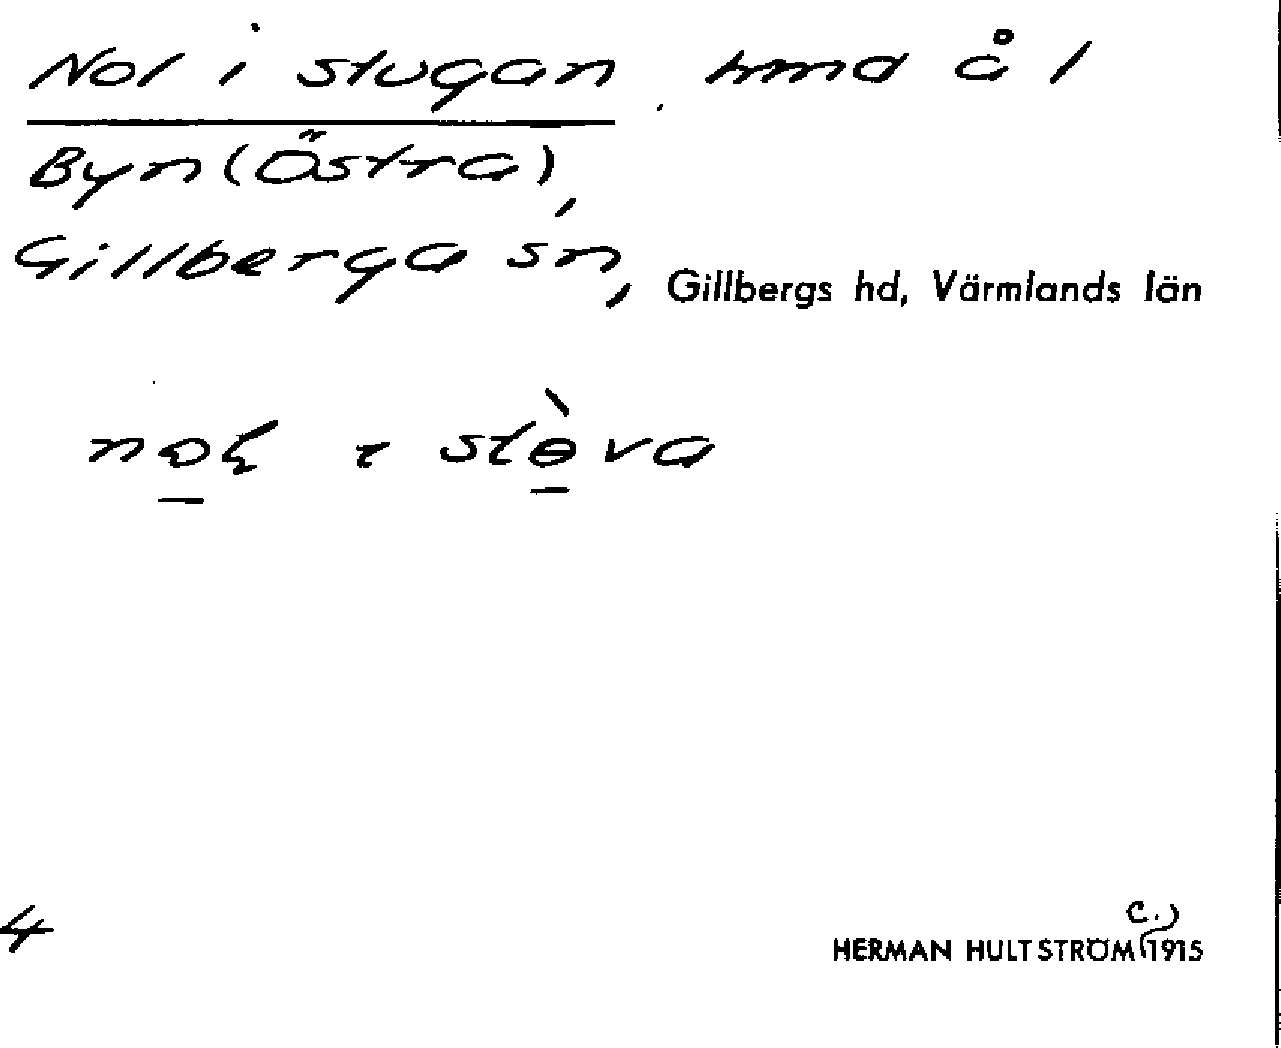 Nol i stugan hmd å 1
Byn (Östra),
Gillberga sn, Gillbergs hd, Värmlands län
stɵ̀va
4
c.)
HERMAN HULTSTRÖM 1915